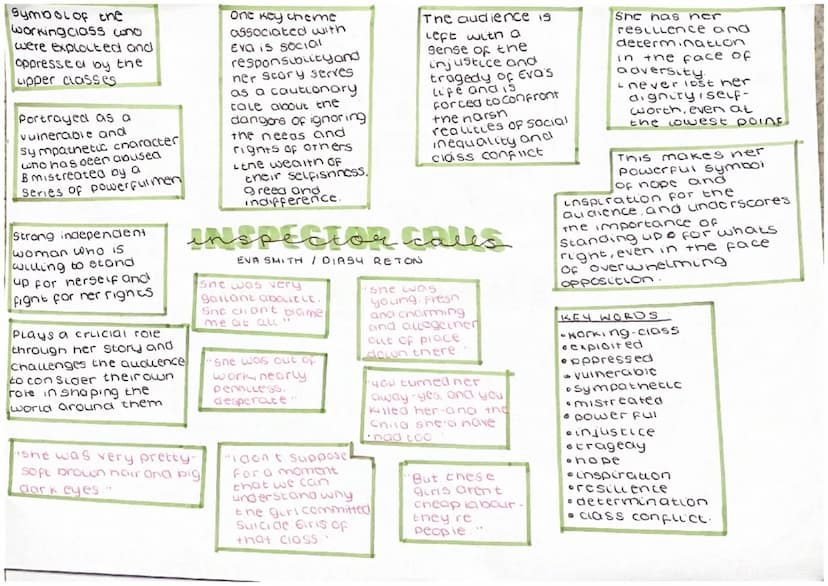 Symbol of the
working class who
were exploited and
oppressed by the
upper classes
Portrayed as a
vulnerable and
sympathetic character
who has been abused
& mistreated by a
series of powerful men
Strong independent
woman who is
willing to stand
up for herself and
fight for her rights
Plays a crucial role
through her story and
challenges the audience
to consider their own
role in shaping the
world around them
"She was very pretty-
soft brown hair and big
dark eyes."
One key theme
associated with
Eva is social
responsibility and
her story serves
as a cautionary
tale about the
dangers of ignoring
the needs and
rights of others
the wealth of
their selfishness,
greed and
indifference.
The audience is
left with a
sense of the
injustice and
tragedy of Eva's
life and is
forced to confront
the harsh
realities of social
inequality and
class conflict
She has her
resilience and
determination
in the face of
adversity.
never lost her
dignity/self-
worth, even at
the lowest point
This makes her
powerful symbol
of hope and
inspiration for the
audience, and underscores
the importance of
standing up for whats
right, even in the face
of overwhelming
opposition.
INSPECTOR CALLS
inspector calls
EVA SMITH / DIASY RETON
She was very
gallant about it.
She didnt blame
me at all."
"She was
young, fresh
and charming
and altogether
out of place
down there "
"She was out of
work, nearly
penniless,
desperate"
"you turned her
away-yes, and you
killed her-and the
child she'd have
had too
"I don't suppose
for a moment
that we can
understand why
the girl committed
suicide Girls of
that class "
"But these
girls arent
cheap labour-
they're
people."
KEY WORDS
• working-class
• exploited
• oppressed
• vulnerable
• sympathetic
• mistreated
• powerful
• injustice
• tragedy
• hope
• inspiration
• resilience
• determination
• class conflict.